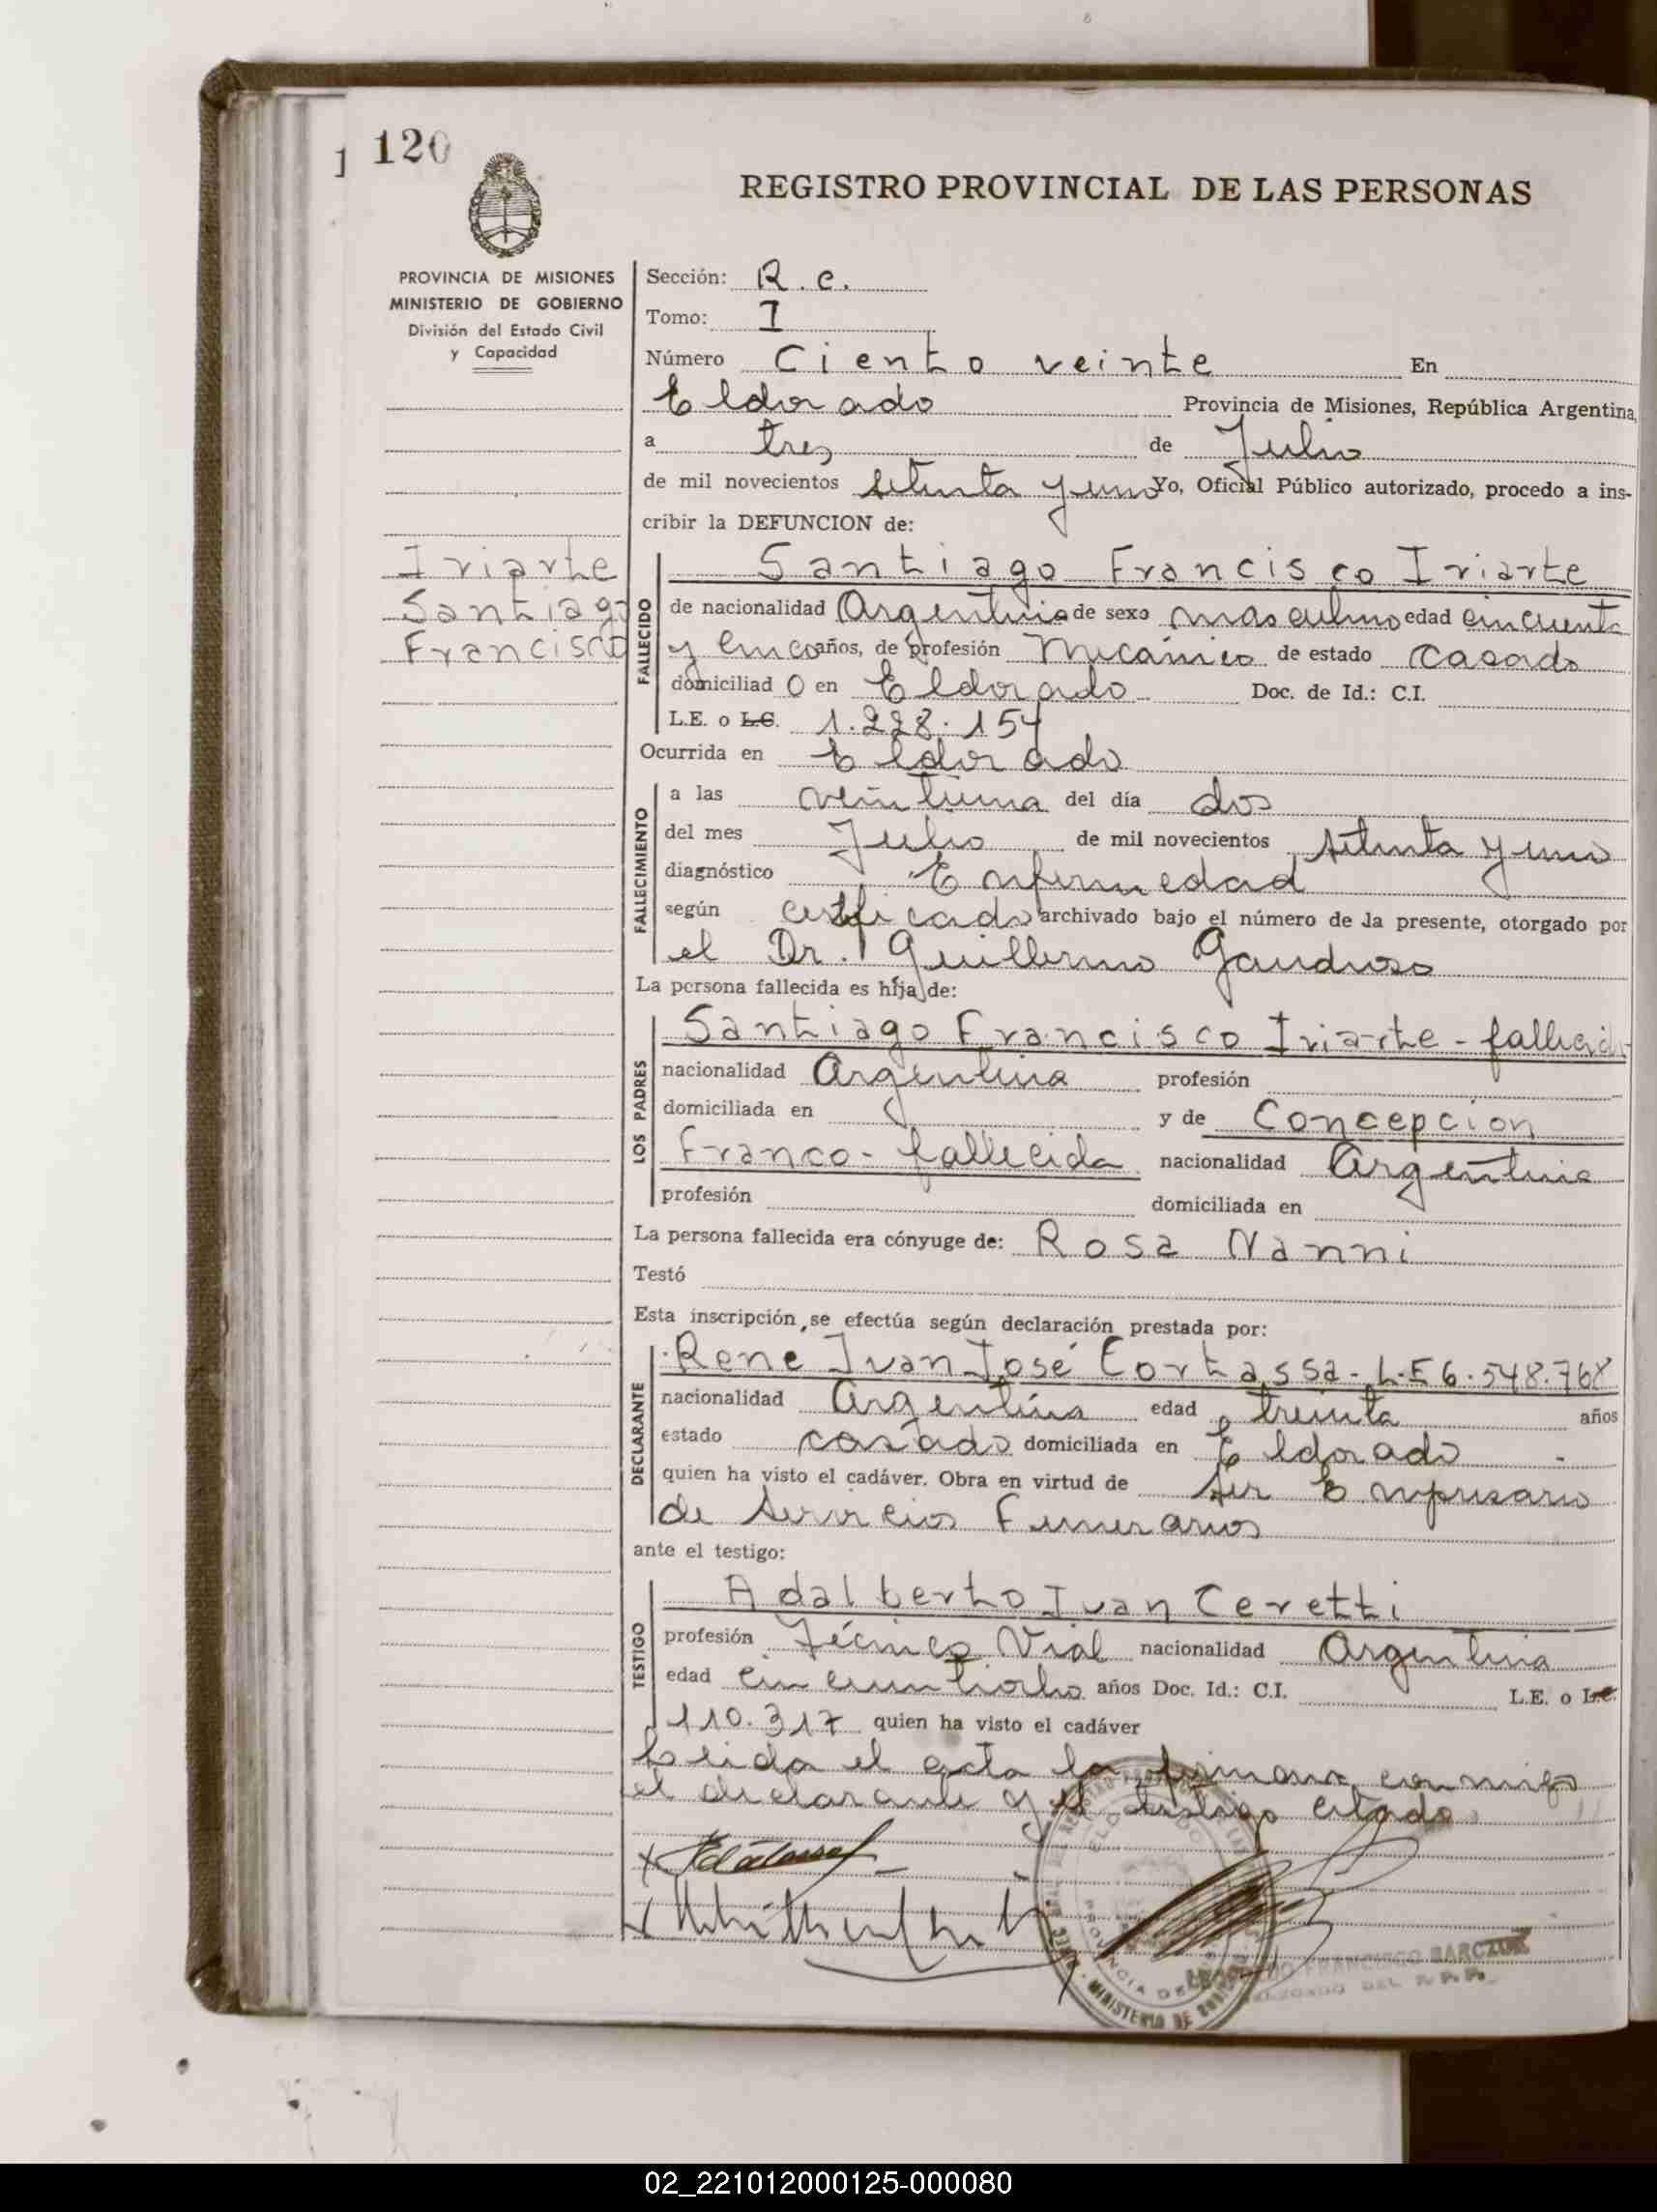 120
REGISTRO PROVINCIAL DE LAS PERSONAS
PROVINCIA DE MISIONES
MINISTERIO DE GOBIERNO
División del Estado Civil
y Capacidad
Iriarte
Santiago
Francisco
Sección: R.C.
Tomo: I
Número Ciento veinte En
Eldorado Provincia de Misiones, República Argentina,
a tres de Julio
de mil novecientos setenta y uno Yo, Oficial Público autorizado, procedo a ins-
cribir la DEFUNCION de:
FALLECIDO
Santiago Francisco Iriarte
de nacionalidad Argentina de sexo masculino edad cincuenta
y cinco años, de profesión Mecánico de estado casado
domiciliad O en Eldorado Doc. de Id.: C.I.
L.E. o L.C. 1.228.154
Ocurrida en Eldorado
FALLECIMIENTO
a las veintiuna del día dos
del mes Julio de mil novecientos setenta y uno
diagnóstico Enfermedad
según certificado archivado bajo el número de la presente, otorgado por
el Dr. Guillermo
La persona fallecida es hija de:
LOS PADRES
Santiago Francisco Iriarte - fallecido
nacionalidad Argentina profesión
domiciliada en y de Concepcion
Franco - fallecida nacionalidad Argentina
profesión domiciliada en
La persona fallecida era cónyuge de: Rosa Nanni
Testó
Esta inscripción se efectúa según declaración prestada por:
DECLARANTE
Rene Juan José Cortassa - L.E 6.548.768
nacionalidad Argentina edad treinta años
estado casado domiciliada en Eldorado
quien ha visto el cadáver. Obra en virtud de ser Empresario
de Servicios Funerarios
ante el testigo:
TESTIGO
Adalberto Ivan Ceretti
profesión Técnico Vial nacionalidad Argentina
edad cincuentiocho años Doc. Id.: C.I. L.E. o L.C.
110.317 quien ha visto el cadáver
Leida el acta la firman conmigo
el declarante y el testigo citado
PROVINCIA DE
MINISTERIO DE
FRANCISCO
02_221012000125-000080